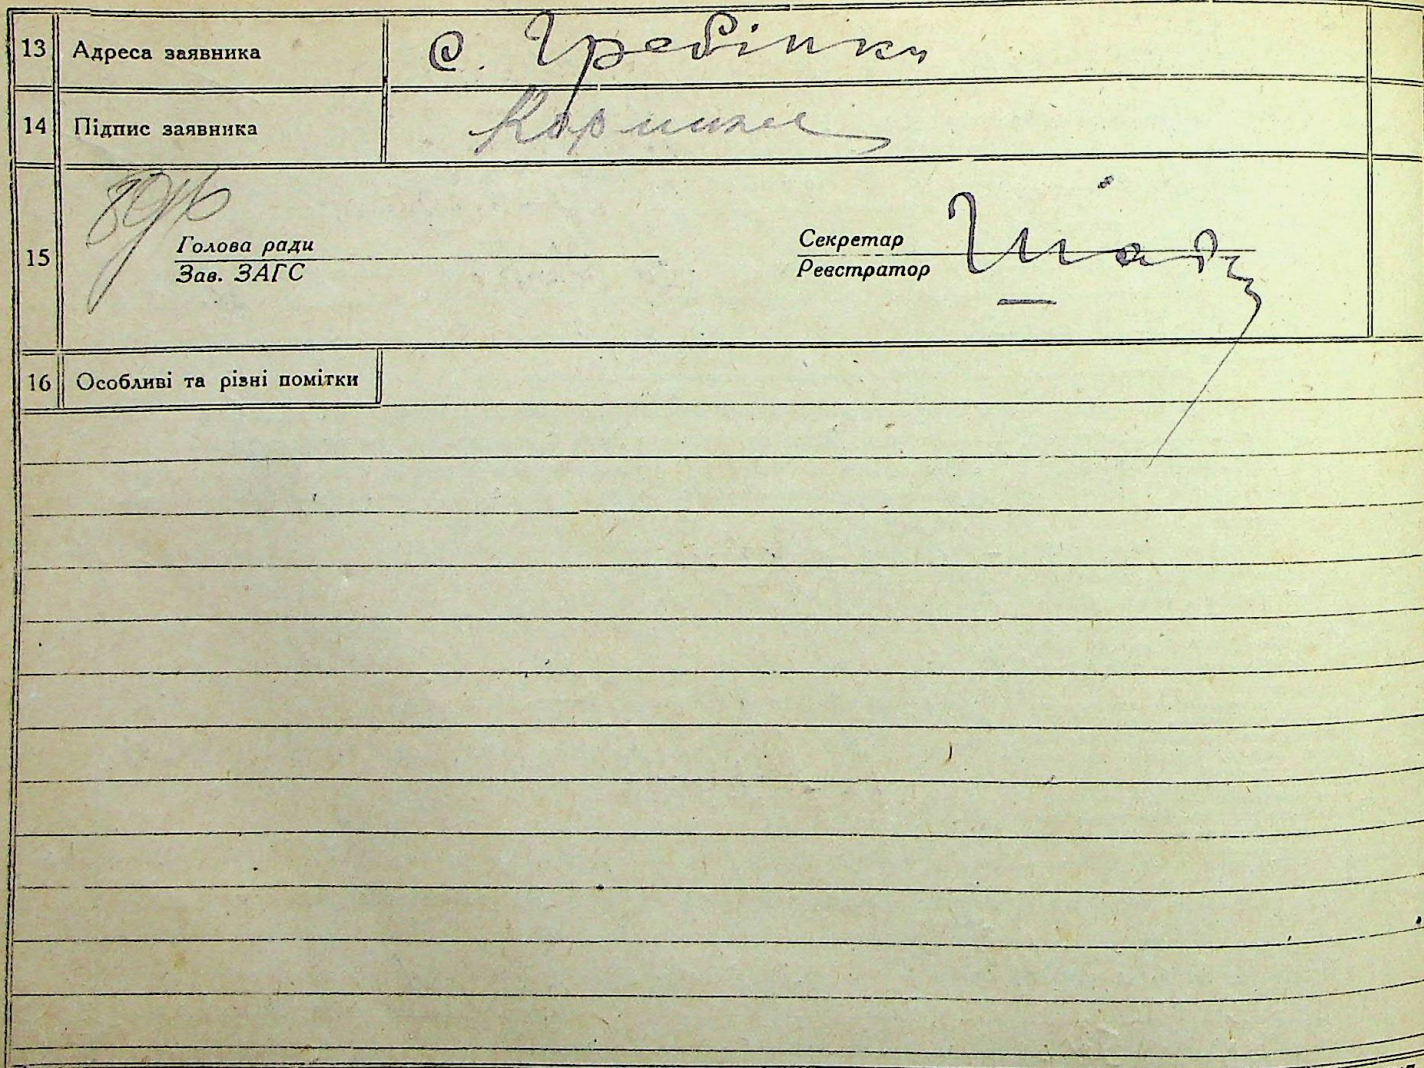 13 Адреса заявника с. Гребінки
14 Підпис заявника
15
Голова ради
Зав. ЗАГС
Секретар
Реєстратор
16 Особливі та різні помітки